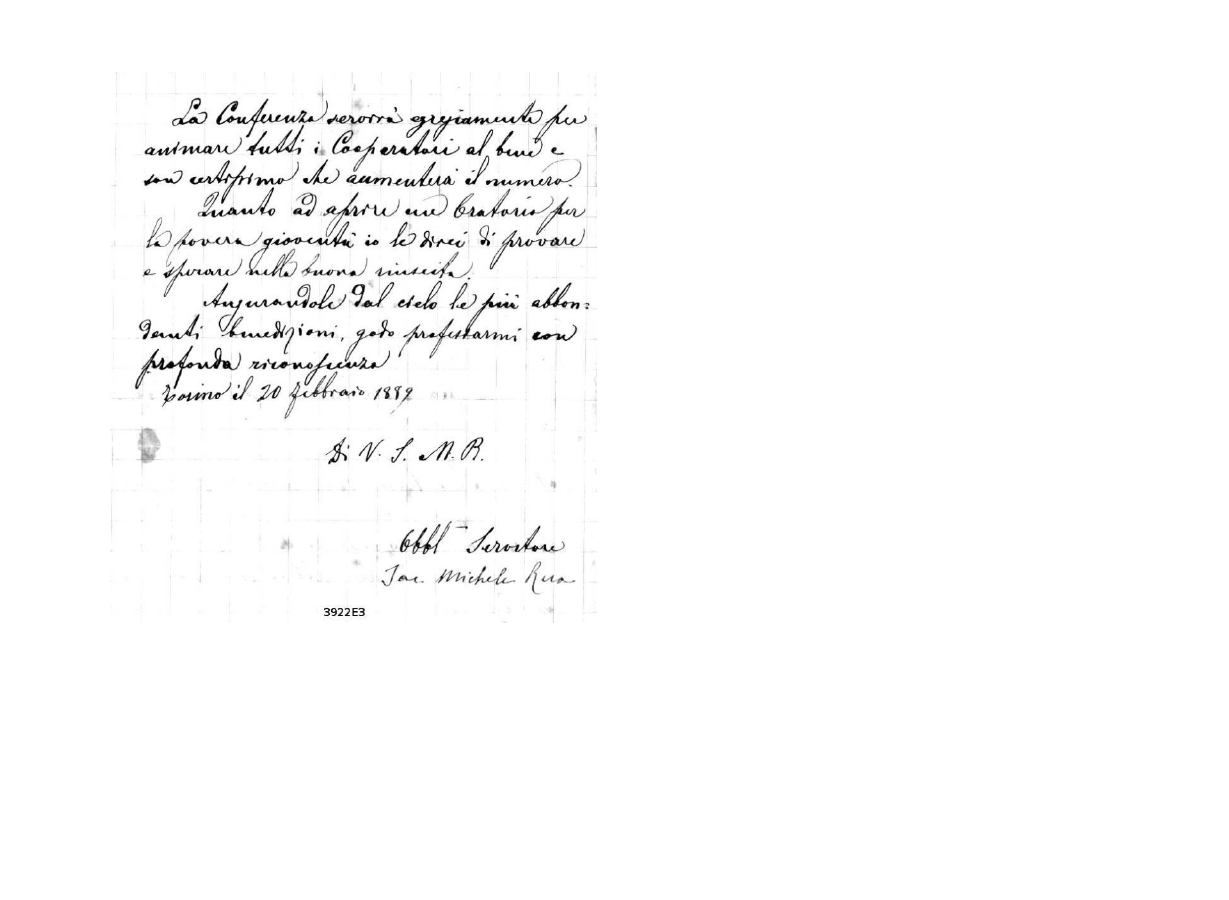 La Conferenza servirà egregiamente per
animare tutti i Cooperatori al bene e
son certissimo che aumenterà il numero.
Quanto ad aprire un Oratorio per
la povera gioventù io le direi di provare
e sperare nella buona riuscita.
Augurandole dal cielo le più abbon=
danti benedizioni, godo professarmi con
profonda riconoscenza
Torino il 20 febbraio 1889
Di V. S. M. R.
Obbl Servitore
Sac. Michele Rua
3922E3